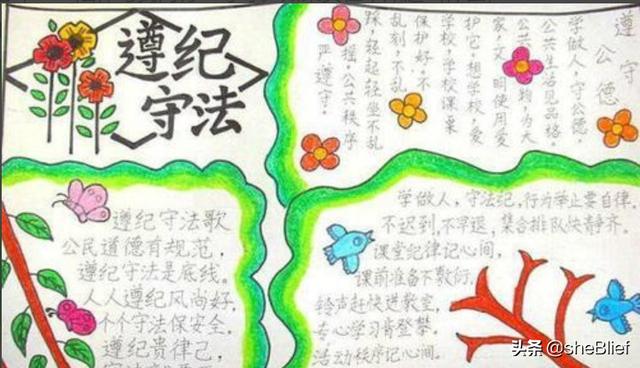 遵纪
守法
遵守公德
学做人，守公德，
公共生活见品格。
公共财物，为大
家，文明使用爱
护它，想学校，爱
学校，学校课桌
保护好。不
乱刻，不乱
踩，轻起轻坐不乱
摇。公共秩序
严遵守。
遵纪守法歌
公民道德有规范，
遵纪守法是底线。
人人遵纪风尚好，
个个守法保安全。
遵纪贵律己，
学做人，守法纪，行为举止要自律。
不迟到，不早退，集合排队快静齐。
课堂纪律记心间，
课前准备不敷衍。
铃声赶快进教室，
专心学习肯登攀。
活动秩序记心间。
头条 @sheBlief